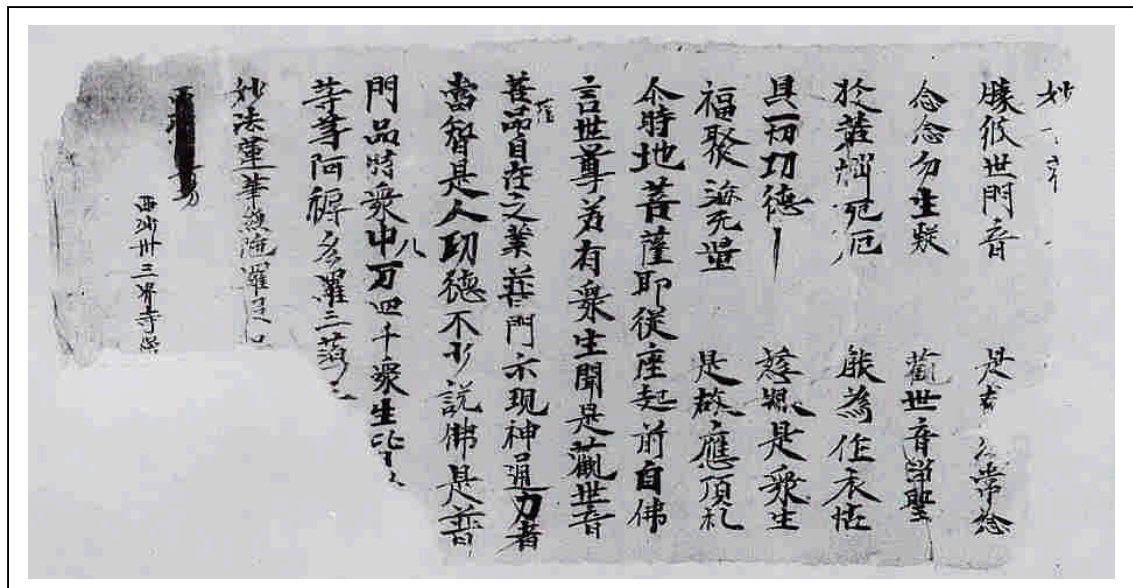 妙
勝彼世門音 是 常念
念念勿生疑 觀世音淨聖
於苦惱死厄 能為作衣怙
具一切功德 慈眼是衆生
福聚海无量 是故應頂礼
尒時地菩薩即從座起前白佛
言世尊若有衆生聞是觀世音
菩薩品自在之業莊門示現神通力者
當智是人功德不少說佛是普
門品時衆中八万四千衆生皆
等等阿耨多羅三藐
妙法蓮華經陁羅尼
西沙州三界寺